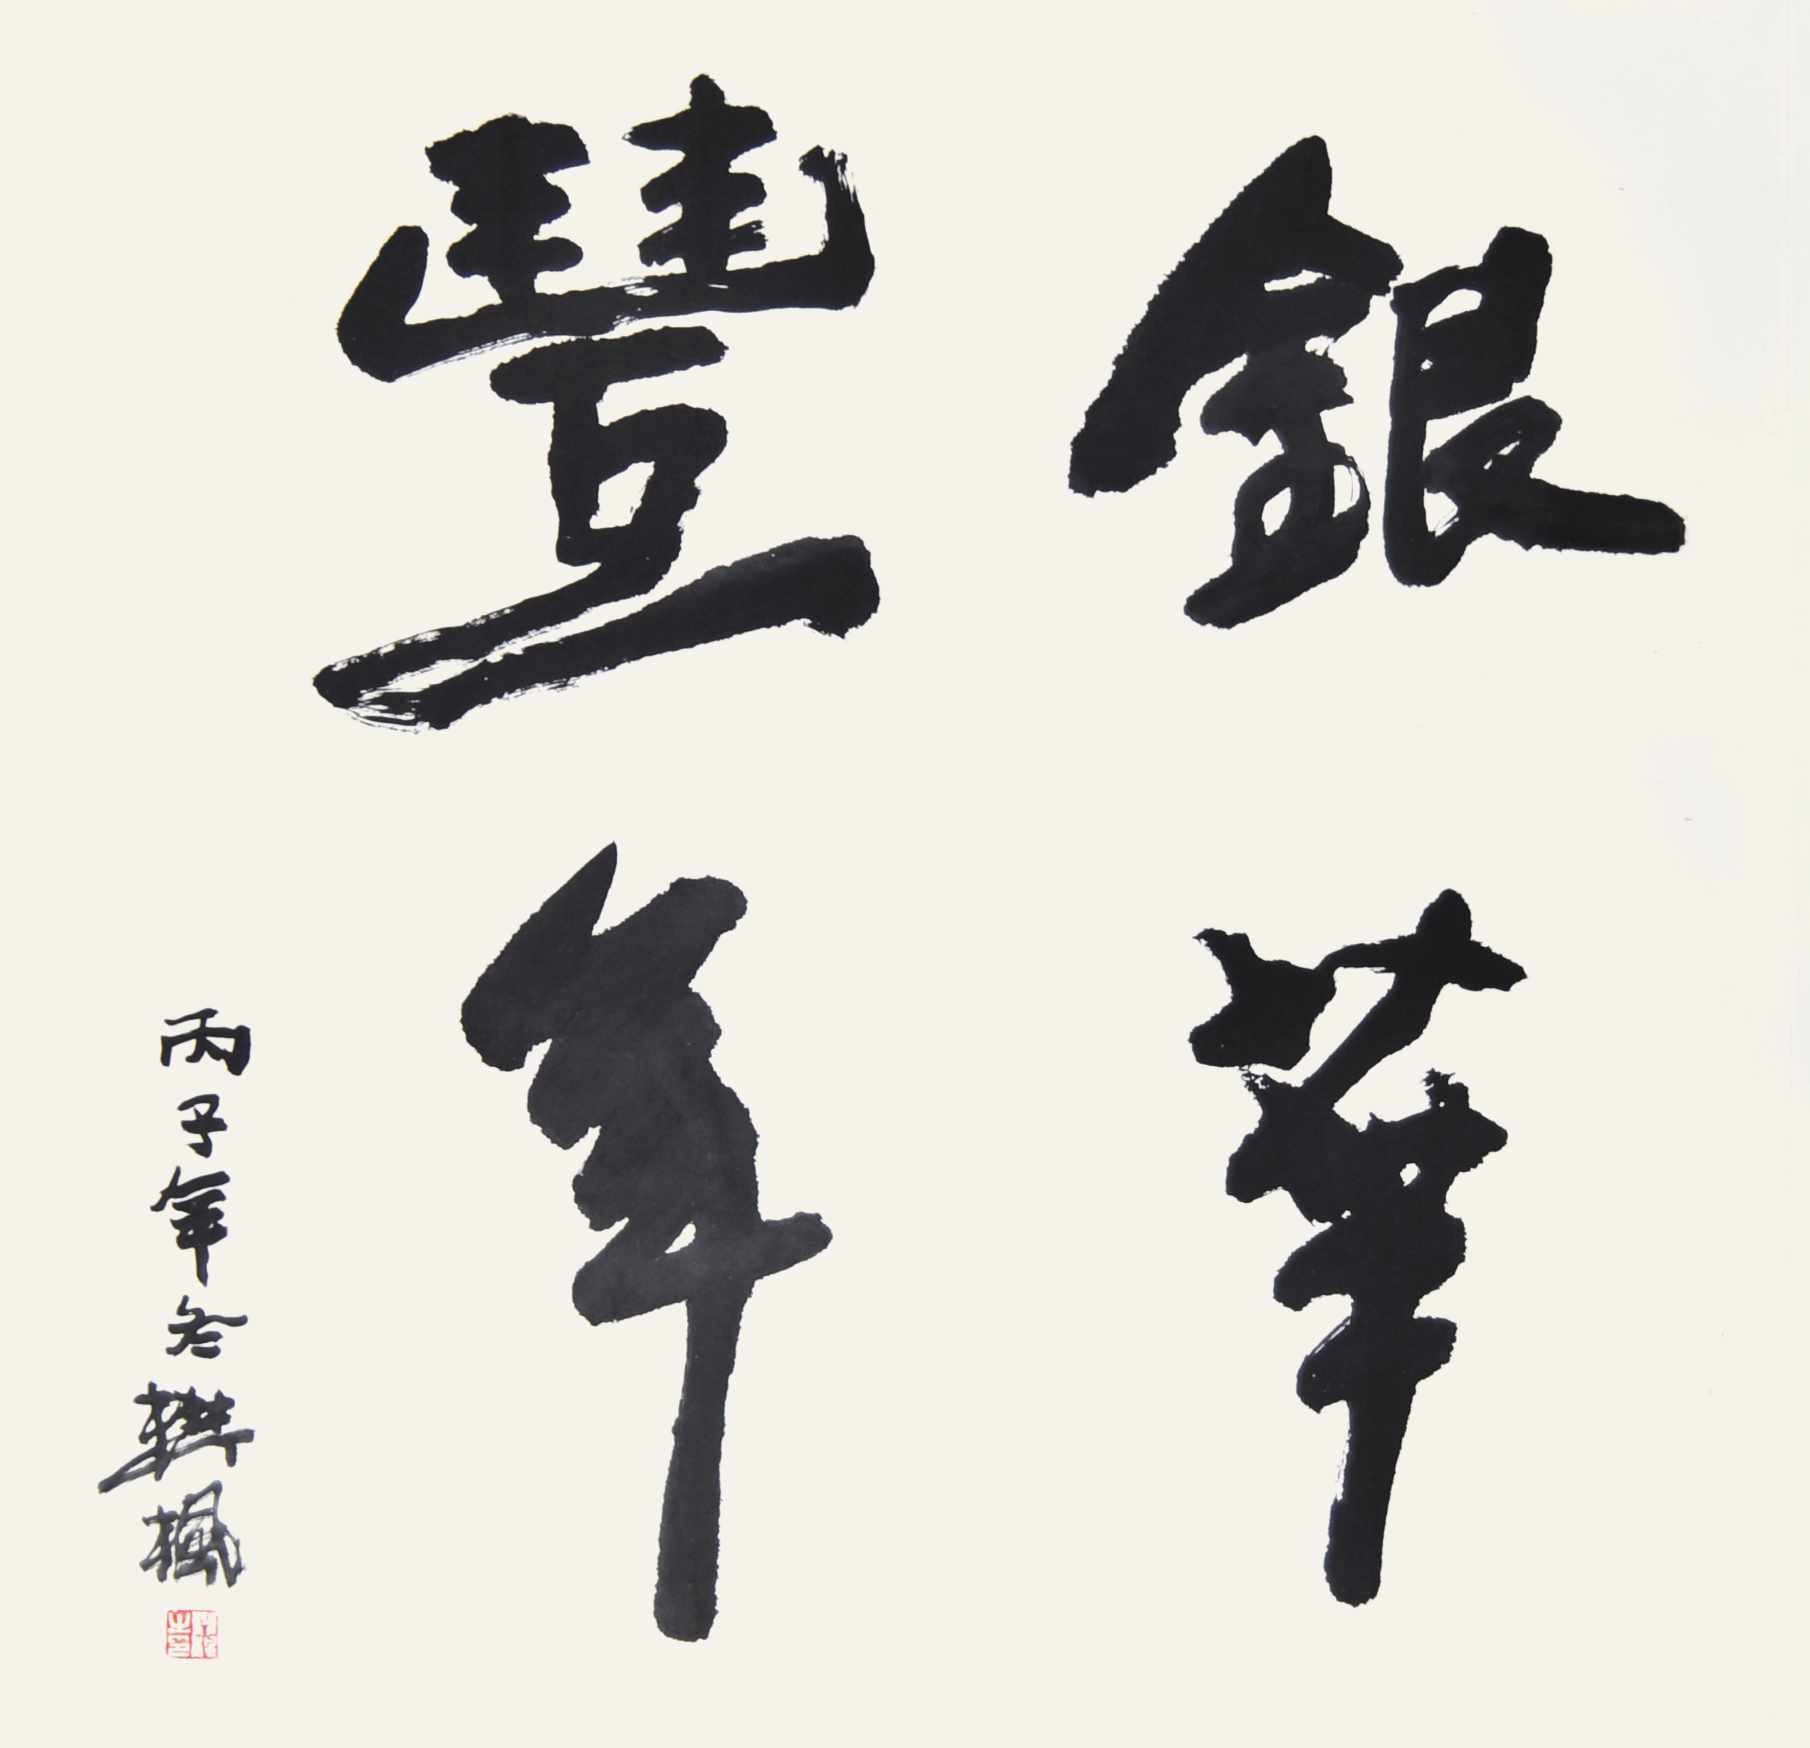 銀華
豐年
丙子年冬